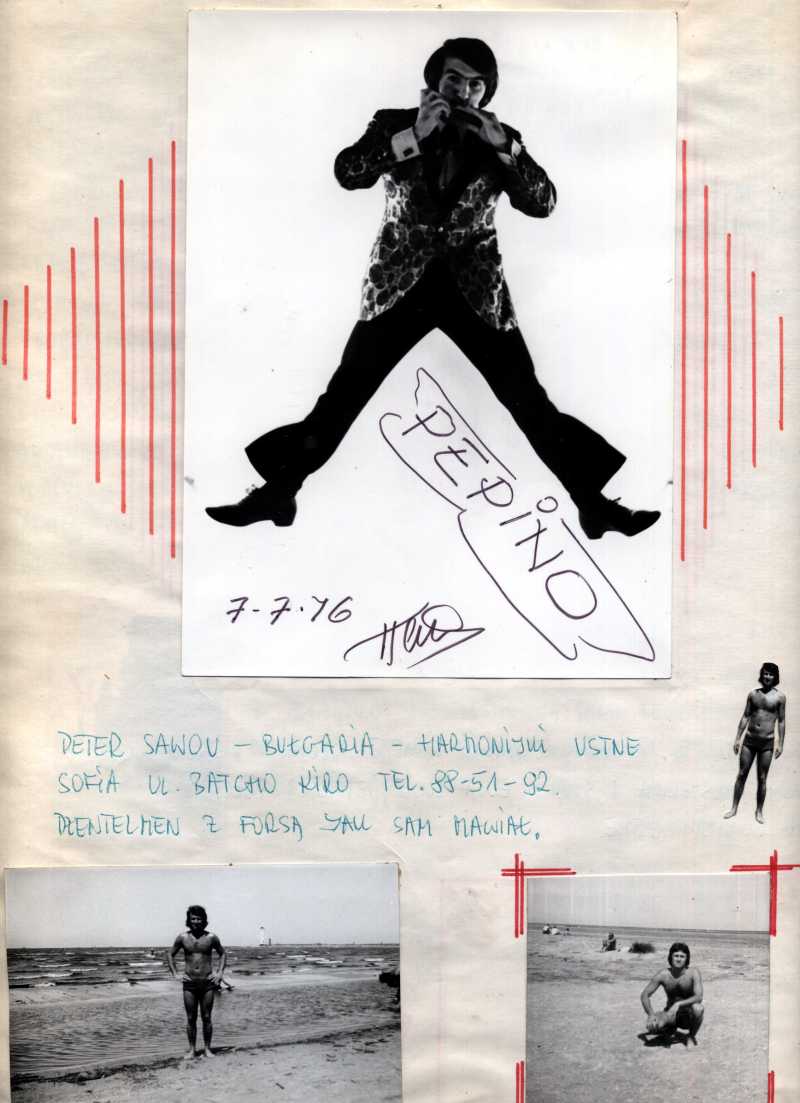 PEPINO
7-7.76
PETER SAWOV – BUŁGARIA – HARMONIJKI USTNE
SOFIA UL. BATCHO KIRO TEL. 88-51-92.
DŻENTELMEN Z FORSĄ JAK SAM MAWIAŁ.